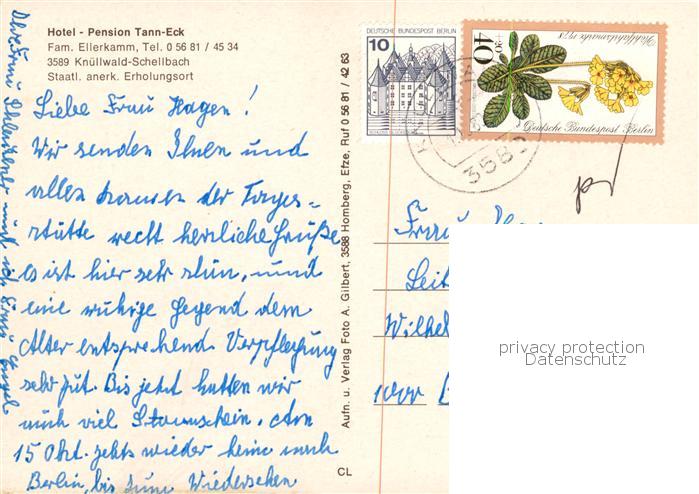 Hotel - Pension Tann-Eck
Fam. Ellerkamm, Tel. 0 56 81 / 45 34
3589 Knüllwald-Schellbach
Staatl. anerk. Erholungsort
Liebe Frau Hagen!
Wir senden Ihnen und
allen Damen der Tages-
stätte recht herzliche Grüße
es ist hier sehr schön, und
eine ruhige Gegend dem
Alter entsprechend. Verpflegung
sehr gut. Bis jetzt hatten wir
auch viel Sonnenschein. Am
15 Okt. gehts wieder heim nach
Berlin, bis zum Wiedersehen
Ihre Frau
und ich Frau
Aufn. u. Verlag Foto A. Gilbert, 3588 Homberg, Efze, Ruf 0 56 81 / 42 63
CL
DEUTSCHE BUNDESPOST BERLIN
10
40
Wohlfahrtsmarke
Deutsche Bundespost Berlin
3589
Frau
Leit
Wilhel
privacy protection
Datenschutz